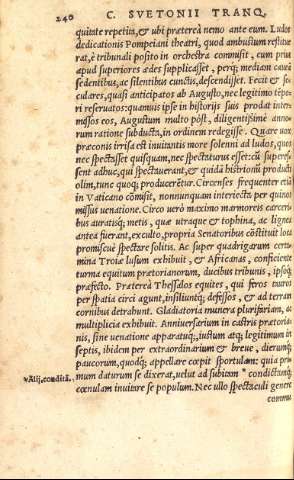 240 C. SVETONII TRANQ.
quitate repetin, & ubi præterea nemo ante eum. Ludos
dedicationis Pompeiani theatri, quod ambustum restitue
rat, è tribunali posito in orchestra commisit, cum prius
apud superiores ædes supplicasset, perq; mediam caueā
sedentibus, ac silentibus cunctis, descendisset. Fecit & se
culares, quasi anticipatos ab Augusto, nec legitimo tēpo
ri reseruatos: quamuis ipse in historijs suis prodat inter
missos eos, Augustum multo pòst, diligentissime anno
rum ratione subducta, in ordinem redegisse. Quare uox
præconis irrisa est inuitantis more solenni ad ludos, quos
nec spectasset quisquam, nec spectaturus esset: cū superes
sent adhuc, qui spectauerant, & quidā histrionū producti
olim, tunc quoq; producerētur. Circenses frequenter etiā
in Vaticano cōmisit, nonnunquam interiecta per quinos
missus uenatione. Circo uerò maximo marmoreis carceri
bus auratisq; metis, quæ utraque & tophina, ac lignea
antea fuerant, exculto, propria Senatoribus cōstituit loca
promiscuè spectare solitis. Ac super quadrigarum certa
mina Troiæ lusum exhibuit, & Africanas, conficiente
turma equitum prætorianorum, ducibus tribunis, ipsoq;
præfecto. Prætereà Thessalos equites, qui feros tauros
per spatia circi agunt, insiliuntq; defessos, & ad terram
cornibus detrahunt. Gladiatoria munera plurifariam, ac
multiplicia exhibuit. Anniuersarium in castris prætoria
nis, sine uenatione apparatuq;, iustum atq; legitimum in
septis, ibidem per extraordinarium & breue, dierumq;
paucorum, quodq; appellare cœpit sportulam: quia pri
*Alij, conditā. mum daturum se dixerat, uelut ad subitam * condictamq;
cœnulam inuitare se populum. Nec ullo spectaculi genere
commu